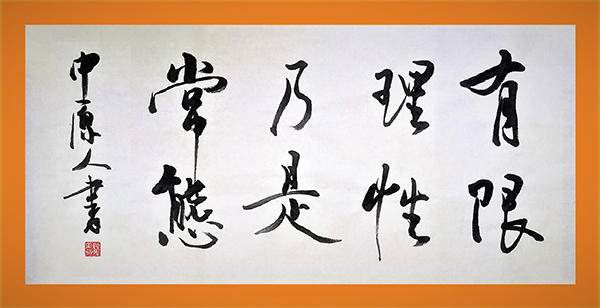 有限
理性
乃是
常態
中原人書